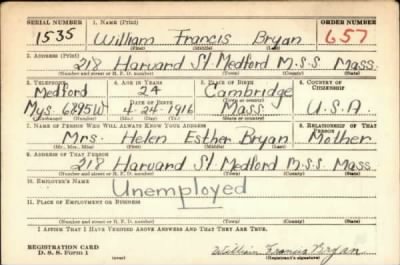 SERIAL NUMBER 1. NAME (Print) ORDER NUMBER
1535 William Francis Bryan 657
(First) (Middle) (Last)
2. ADDRESS (Print)
218 Harvard St. Medford M.S.S Mass.
(Number and street or R. F. D. number) (Town) (County) (State)
3. TELEPHONE 4. AGE IN YEARS 5. PLACE OF BIRTH 6. COUNTRY OF CITIZENSHIP
Medford 24 Cambridge
DATE OF BIRTH (Town or county)
Mys. 6895W 4-24-1916 Mass. U.S.A.
(Exchange) (Number) (Mo.) (Day) (Yr.) (State or country)
7. NAME OF PERSON WHO WILL ALWAYS KNOW YOUR ADDRESS 8. RELATIONSHIP OF THAT PERSON
Mrs. Helen Esther Bryan Mother
(Mr., Mrs., Miss) (First) (Middle) (Last)
9. ADDRESS OF THAT PERSON
218 Harvard St. Medford M.S.S. Mass
(Number and street or R. F. D. number) (Town) (County) (State)
10. EMPLOYER'S NAME
Unemployed
11. PLACE OF EMPLOYMENT OR BUSINESS
(Number and street or R. F. D. number) (Town) (County) (State)
I AFFIRM THAT I HAVE VERIFIED ABOVE ANSWERS AND THAT THEY ARE TRUE.
REGISTRATION CARD
D. S. S. Form 1 William Francis Bryan
(Registrant's signature)